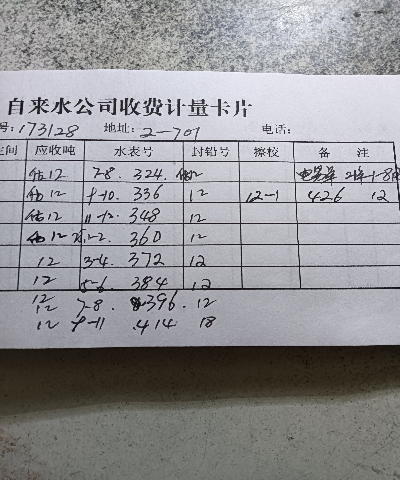 自来水公司收费计量卡片
号:173128 地址: 2-701 电话:
应收吨 水表号 封铅号 擦校 备 注
估12 7-8. 324. 估12
估12 9-10. 336 12 12-1 426 12
估12 11-12. 348 12
估12 1-2. 360 12
12 3-4. 372 12
12 5-6. 384 12
12 7-8. 396. 12
12 9-11 .414 18